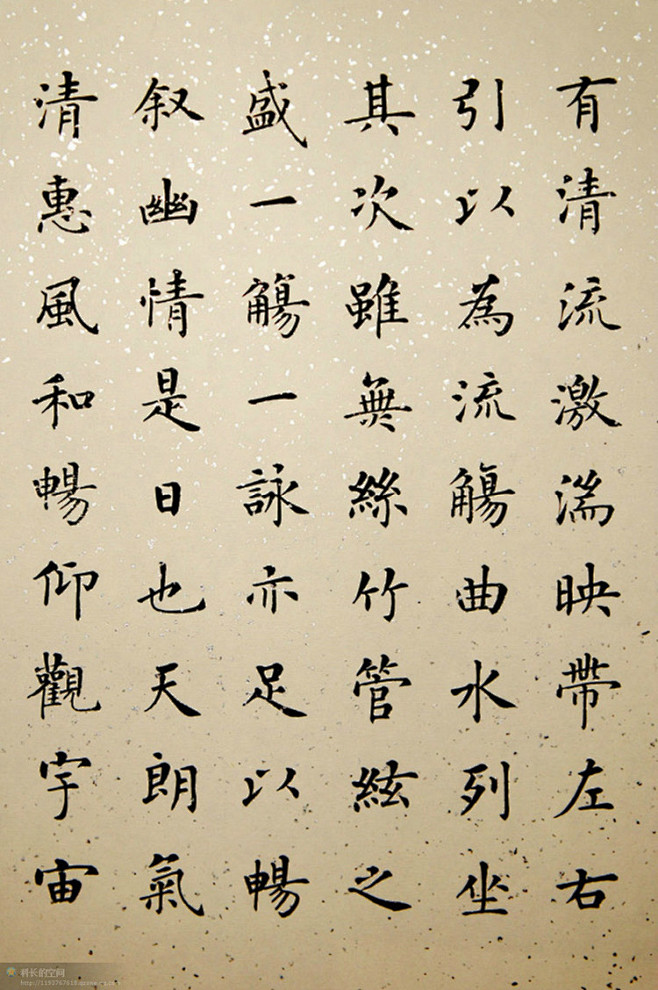 有清流激湍映帶左右
引以為流觴曲水列坐
其次雖無絲竹管絃之
盛一觴一詠亦足以暢
叙幽情是日也天朗氣
清惠風和暢仰觀宇宙
科长的空间